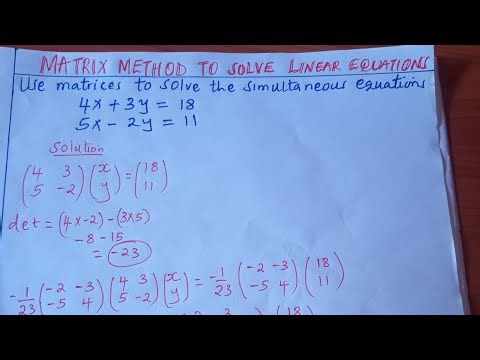 MATRIX METHOD TO SOLVE LINEAR EQUATIONS
Use matrices to solve the simultaneous equations
4x + 3y = 18
5x - 2y = 11
solution
(4 3) (x) = (18)
(5 -2) (y) (11)
det = (4x-2) - (3x5)
-8 - 15
= -23
-1/23 (-2 -3) (4 3) (x) = -1/23 (-2 -3) (18)
(-5 4) (5 -2) (y) (-5 4) (11)